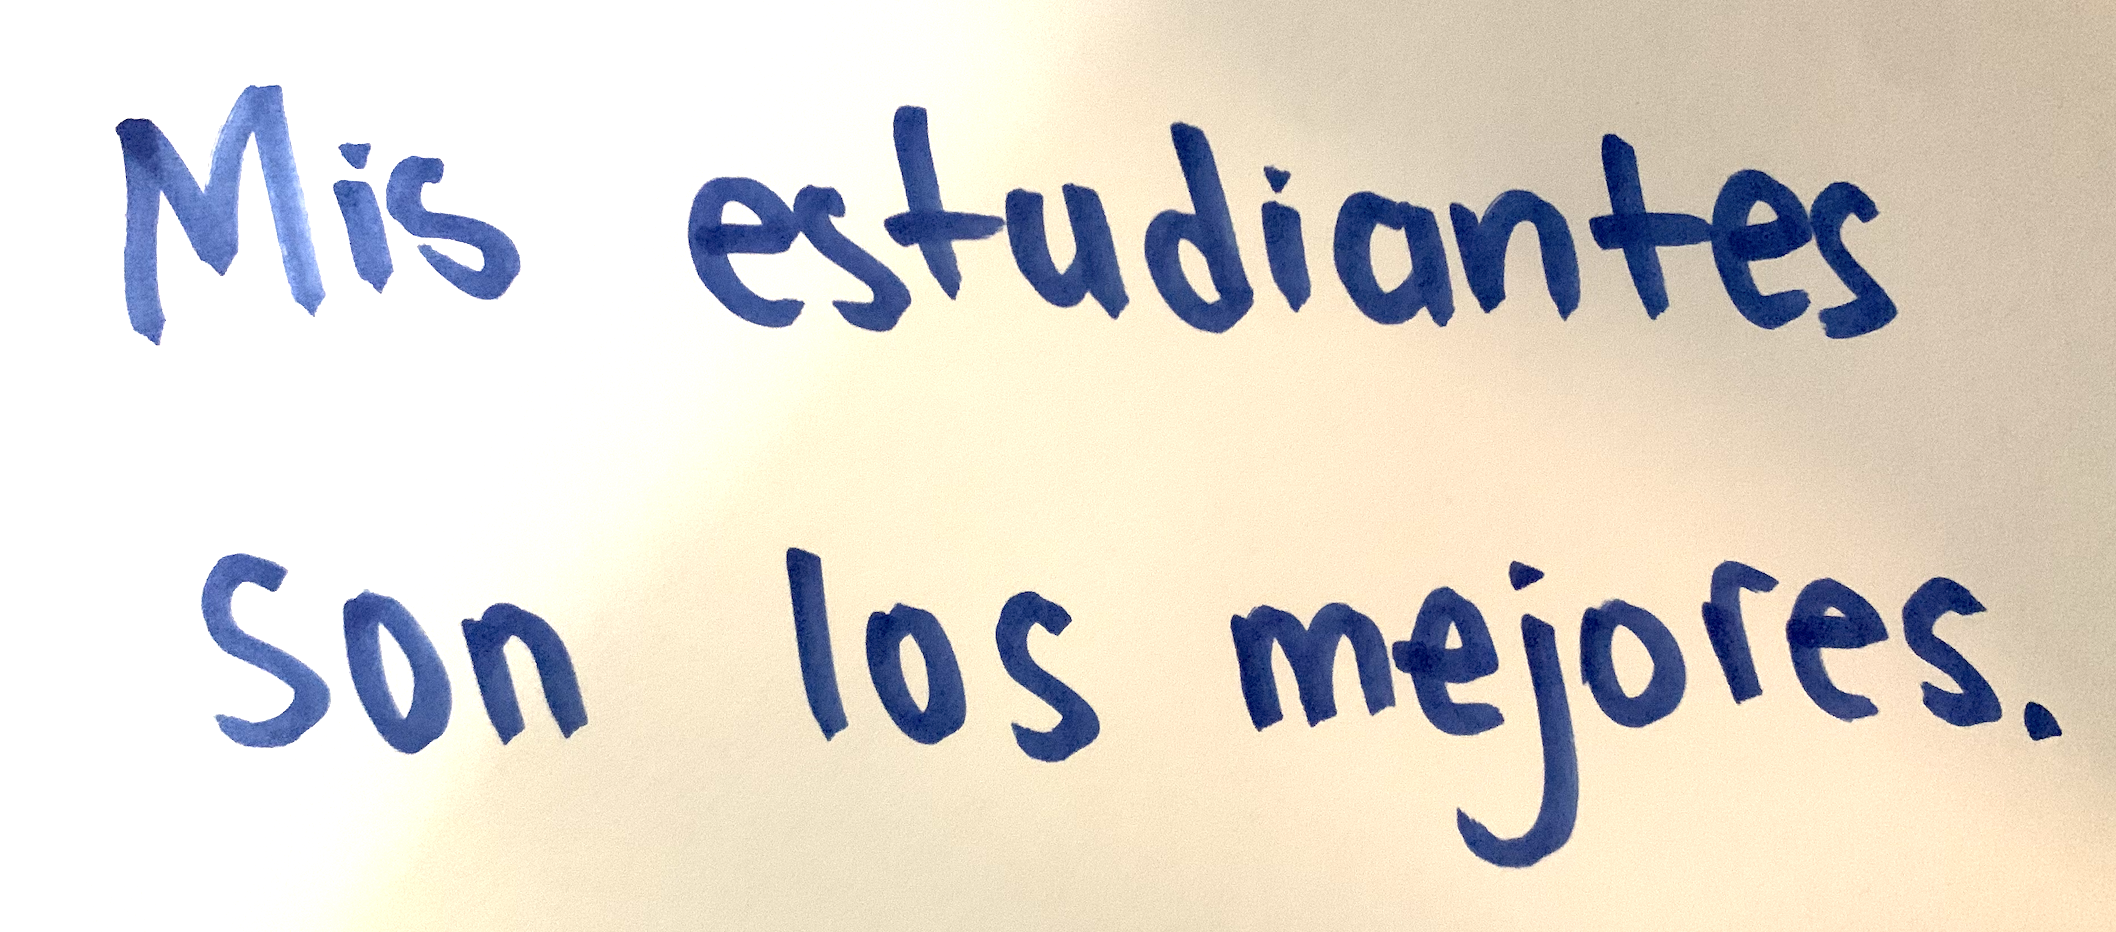 Mis estudiantes
son los mejores.